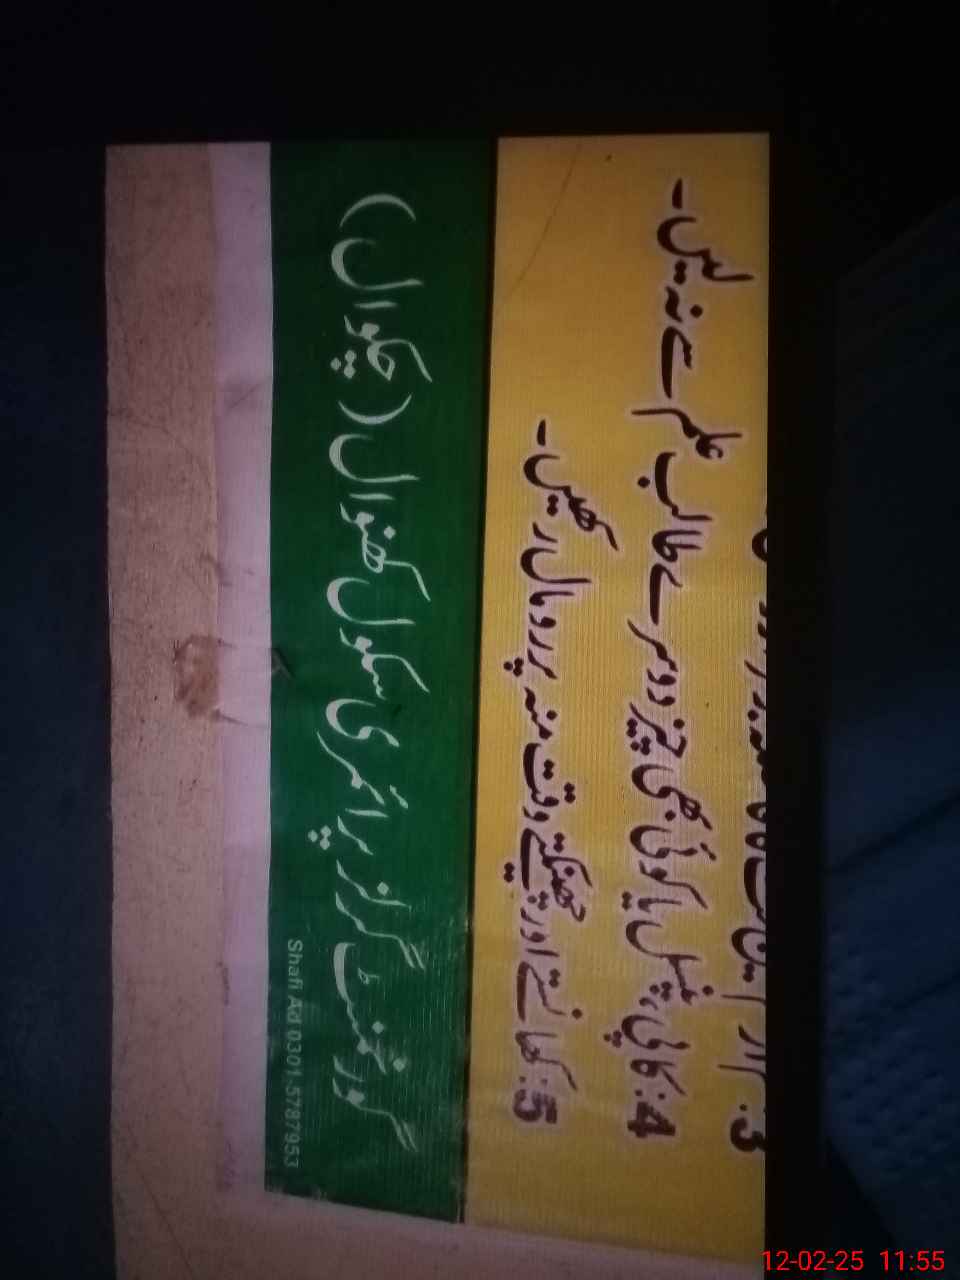 4: کاپی، پنسل یا کوئی بھی چیز دوسرے طالب علم سے نہ لیں۔
5: کھانستے اور چھینکتے وقت منہ پر رومال رکھیں۔
گورنمنٹ گرلز پرائمری سکول کھنوال (چکوال)
Shafi Ad 0301-5787953
12-02-25 11:55